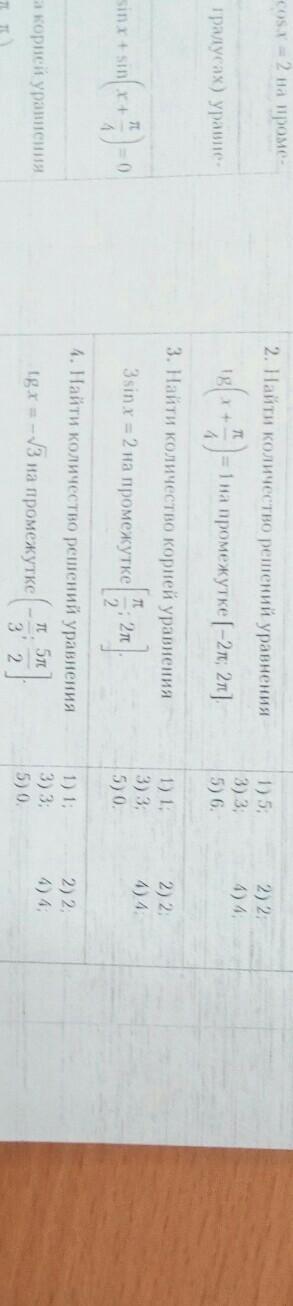 cos x = 2 на проме-
градусах) уравне-
sin x + sin(x + π/4) = 0
а корней уравнения
π π)
2. Найти количество решений уравнения
tg(x + π/4) = 1 на промежутке [−2π; 2π].
1) 5; 2) 2;
3) 3; 4) 4;
5) 6.
3. Найти количество корней уравнения
3 sin x = 2 на промежутке [π/2; 2π].
1) 1; 2) 2;
3) 3; 4) 4;
5) 0.
4. Найти количество решений уравнения
tg x = −√3 на промежутке (−π/3; 5π/2].
1) 1; 2) 2;
3) 3; 4) 4;
5) 0.